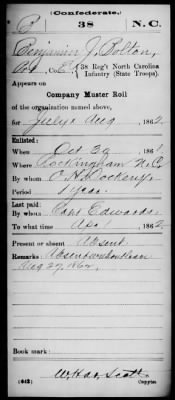 (Confederate.)
B 38 N.C.
Benjamin J. Bolton,
Pvt, Co. E, 38 Reg't North Carolina
Infantry (State Troops).
Appears on
Company Muster Roll
of the organization named above,
for July & Aug, 1862.
Enlisted:
When Oct 29, 1861
Where Rockingham N.C.
By whom O. H. Dockery
Period 1 year
Last paid:
By whom Capt Edwards
To what time Apr 1, 1862.
Present or absent Absent
Remarks: Absent without leave
Aug 27, 1862.
Book mark:
(642)
Copyist.